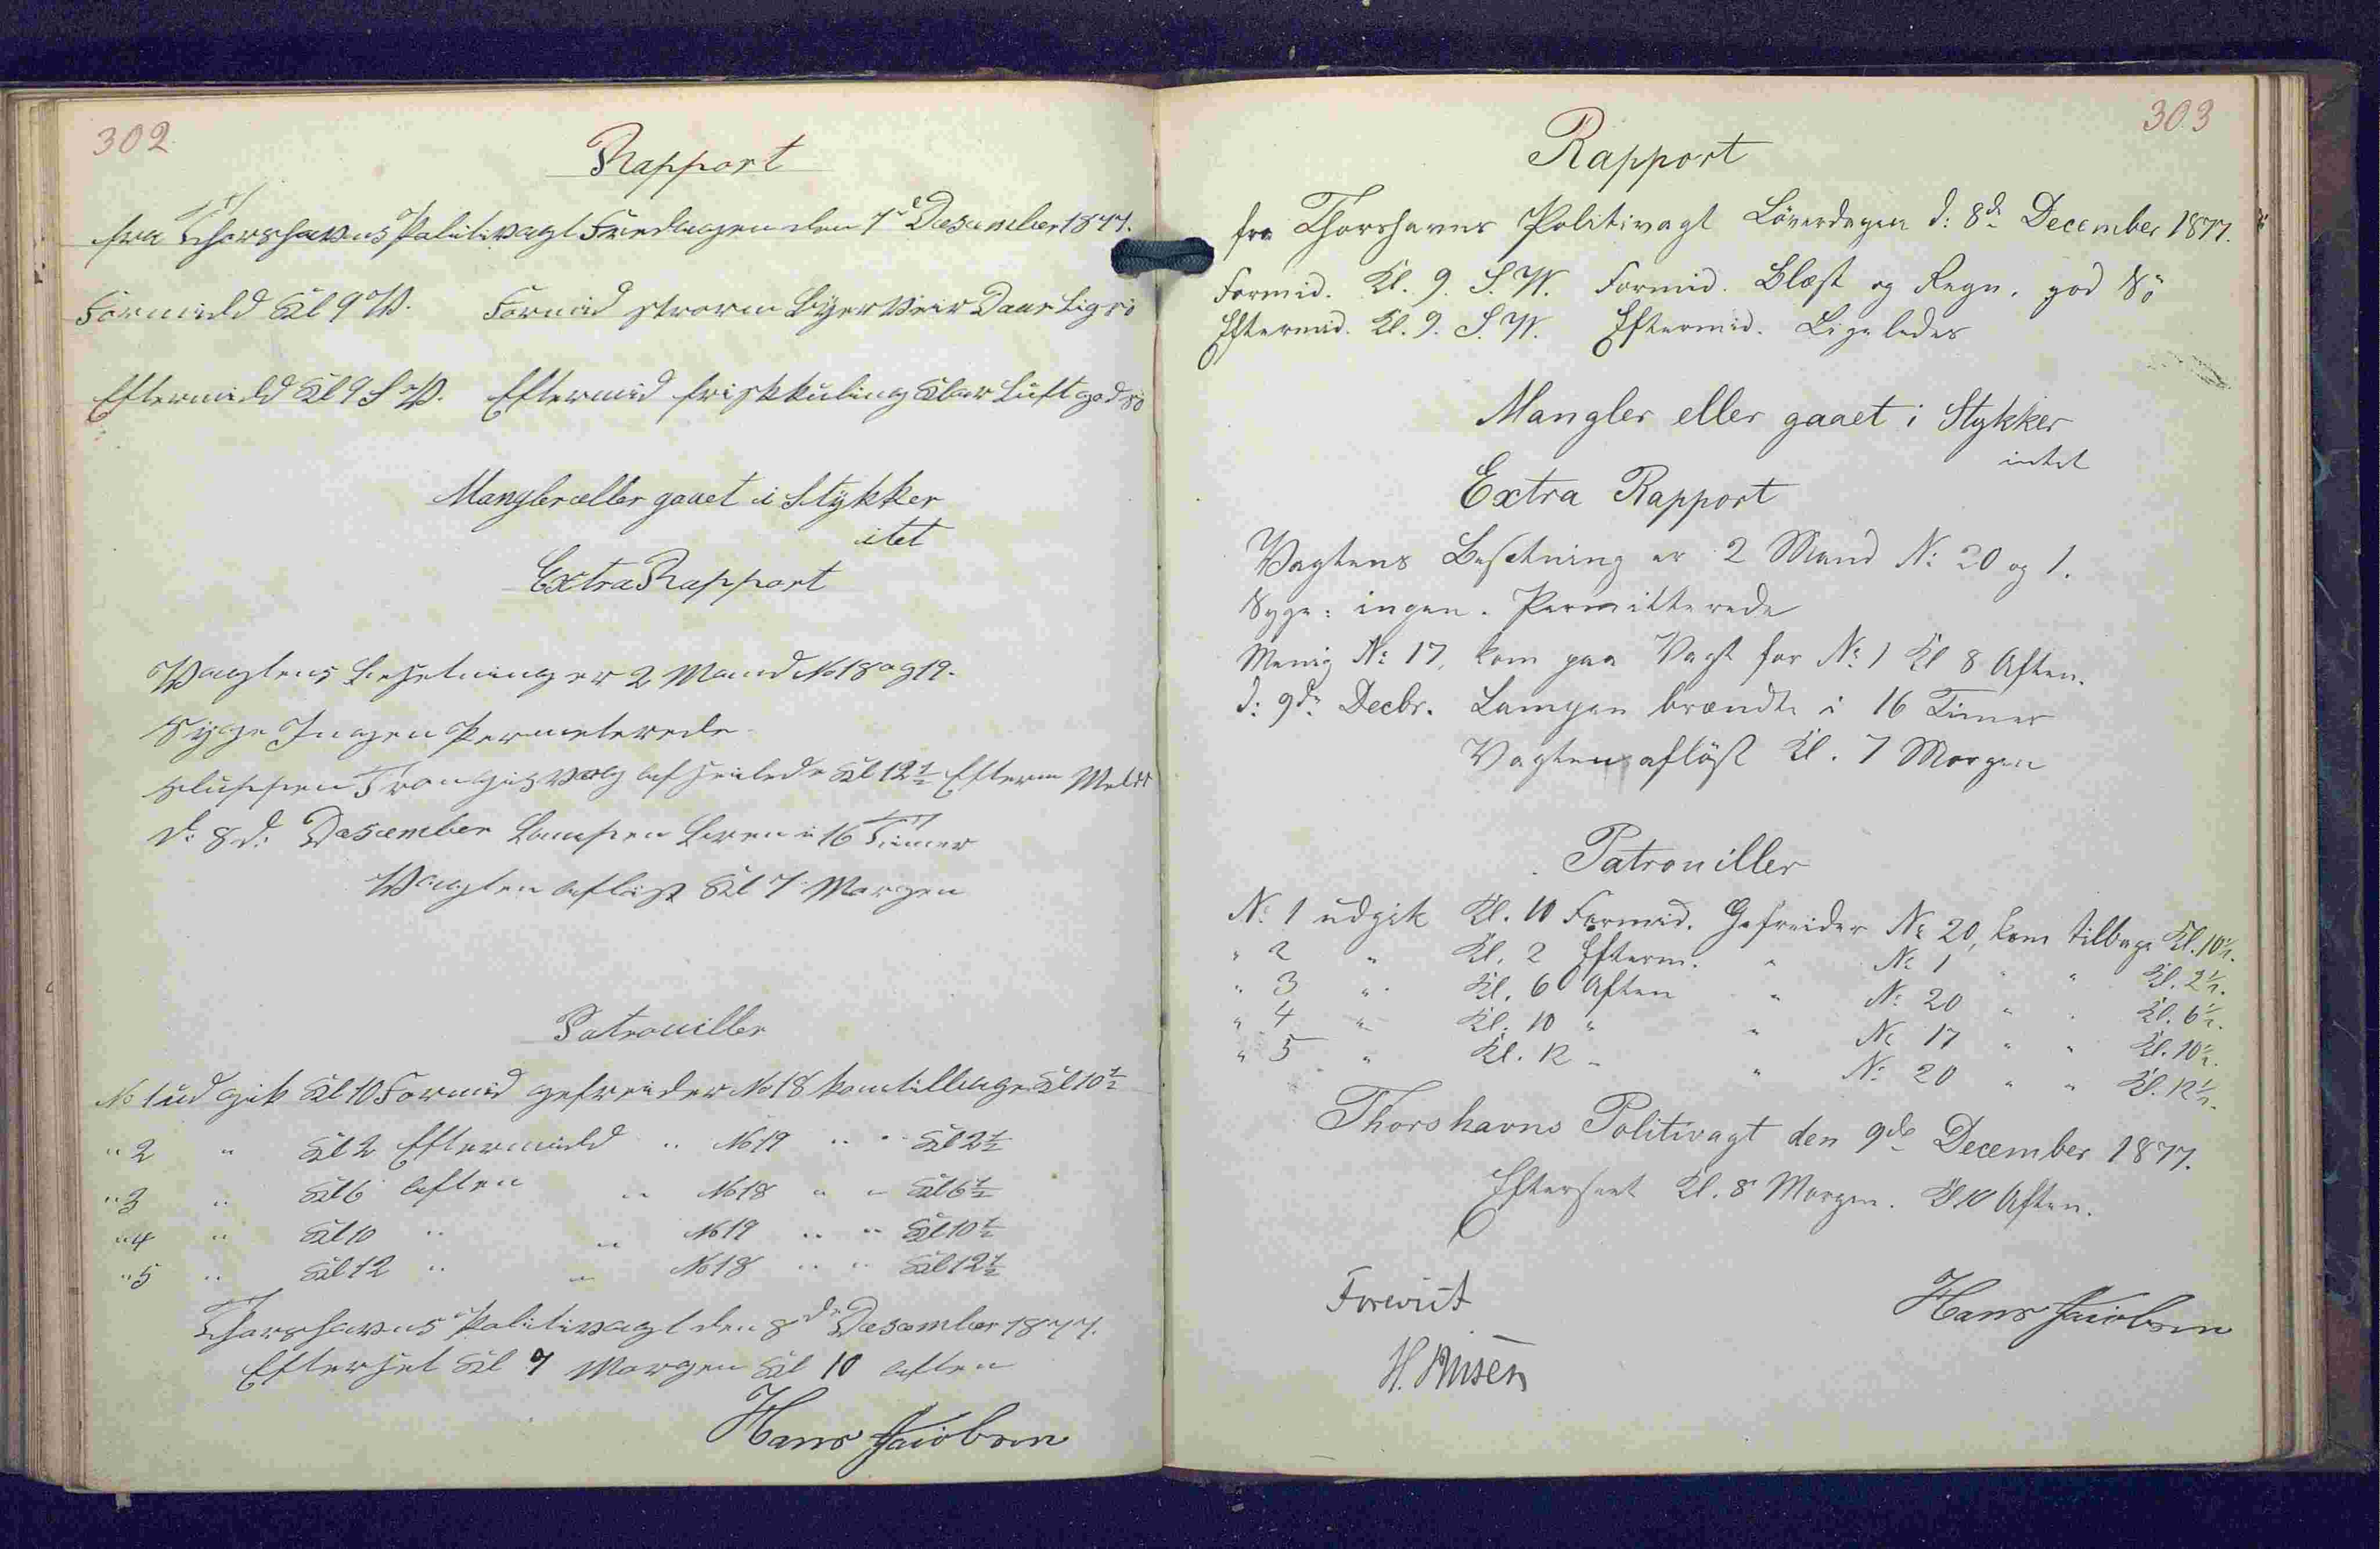 302
Rapport
fra Thorshavns Politivagt Fredagen den 7de Desember 1877.
Formidd Kl 9 W. Formid storm Byer Veir Daarlig sö
Eftermidd Kl 9 S W. Eftermid frisk kuling klar Luft god sö
Mangler eller gaaet i Stykker
itet
Extra Rapport
Vagtens besetning er 2 Mand No 18 og 19.
Syge Ingen Permeterede
Sluppen Trongisvaag afseilede Kl 12 1/2 Efterm
d: 8d: Desember Lampen bren i 16 Timer
Vagten aflöst Kl 7 Morgen
Patrouiller
No 1 ud gik Kl 10 Formid gefreider No 18 kom tilbage Kl 10 1/2
" 2 " Kl 2 Eftermidd " No 19 " " Kl 2 1/2
" 3 " Kl 6 aften " No 18 " " Kl 6 1/2
" 4 " Kl 10 " " No 19 " " Kl 10 1/2
" 5 " Kl 12 " " No 18 " " Kl 12 1/2
Thorshavns Politivagt den 8de Desember 1877.
Efterset Kl 7 Morgen Kl 10 aften
Hans Jacobsen
303
Rapport
fra Thorshavns Politivagt Löverdagen d: 8de December 1877.
Formid. Kl. 9. S. W. Formid. Blæst og Regn, god Sö
Eftermid. Kl. 9. S. W. Eftermid. Ligeledes
Mangler eller gaaet i Stykker
intet
Extra Rapport
Vagtens Besetning er 2 Mand No 20 og 1.
Syge: ingen. Permitterede
Menig No 17, kom paa Vagt for No 1 Kl 8 Aften.
d: 9de Decbr. Lampen brændte i 16 Timer
Vagten aflöst Kl. 7 Morgen
Patrouiller
No 1 udgik Kl. 10 Formid. Gefreider No 20, kom tilbage Kl. 10 1/2.
" 2 " Kl. 2 Efterm. " No 1 " " Kl. 2 1/2.
" 3 " Kl. 6 Aften " No 20 " " Kl. 6 1/2.
" 4 " Kl. 10 " " No 17 " " Kl. 10 1/2.
" 5 " Kl. 12 " " No 20 " " Kl. 12 1/2.
Thorshavns Politivagt den 9de December 1877.
Efterseet Kl. 8 Morgen. Kl 10 Aften.
Forevist
Hans Jacobsen
H.